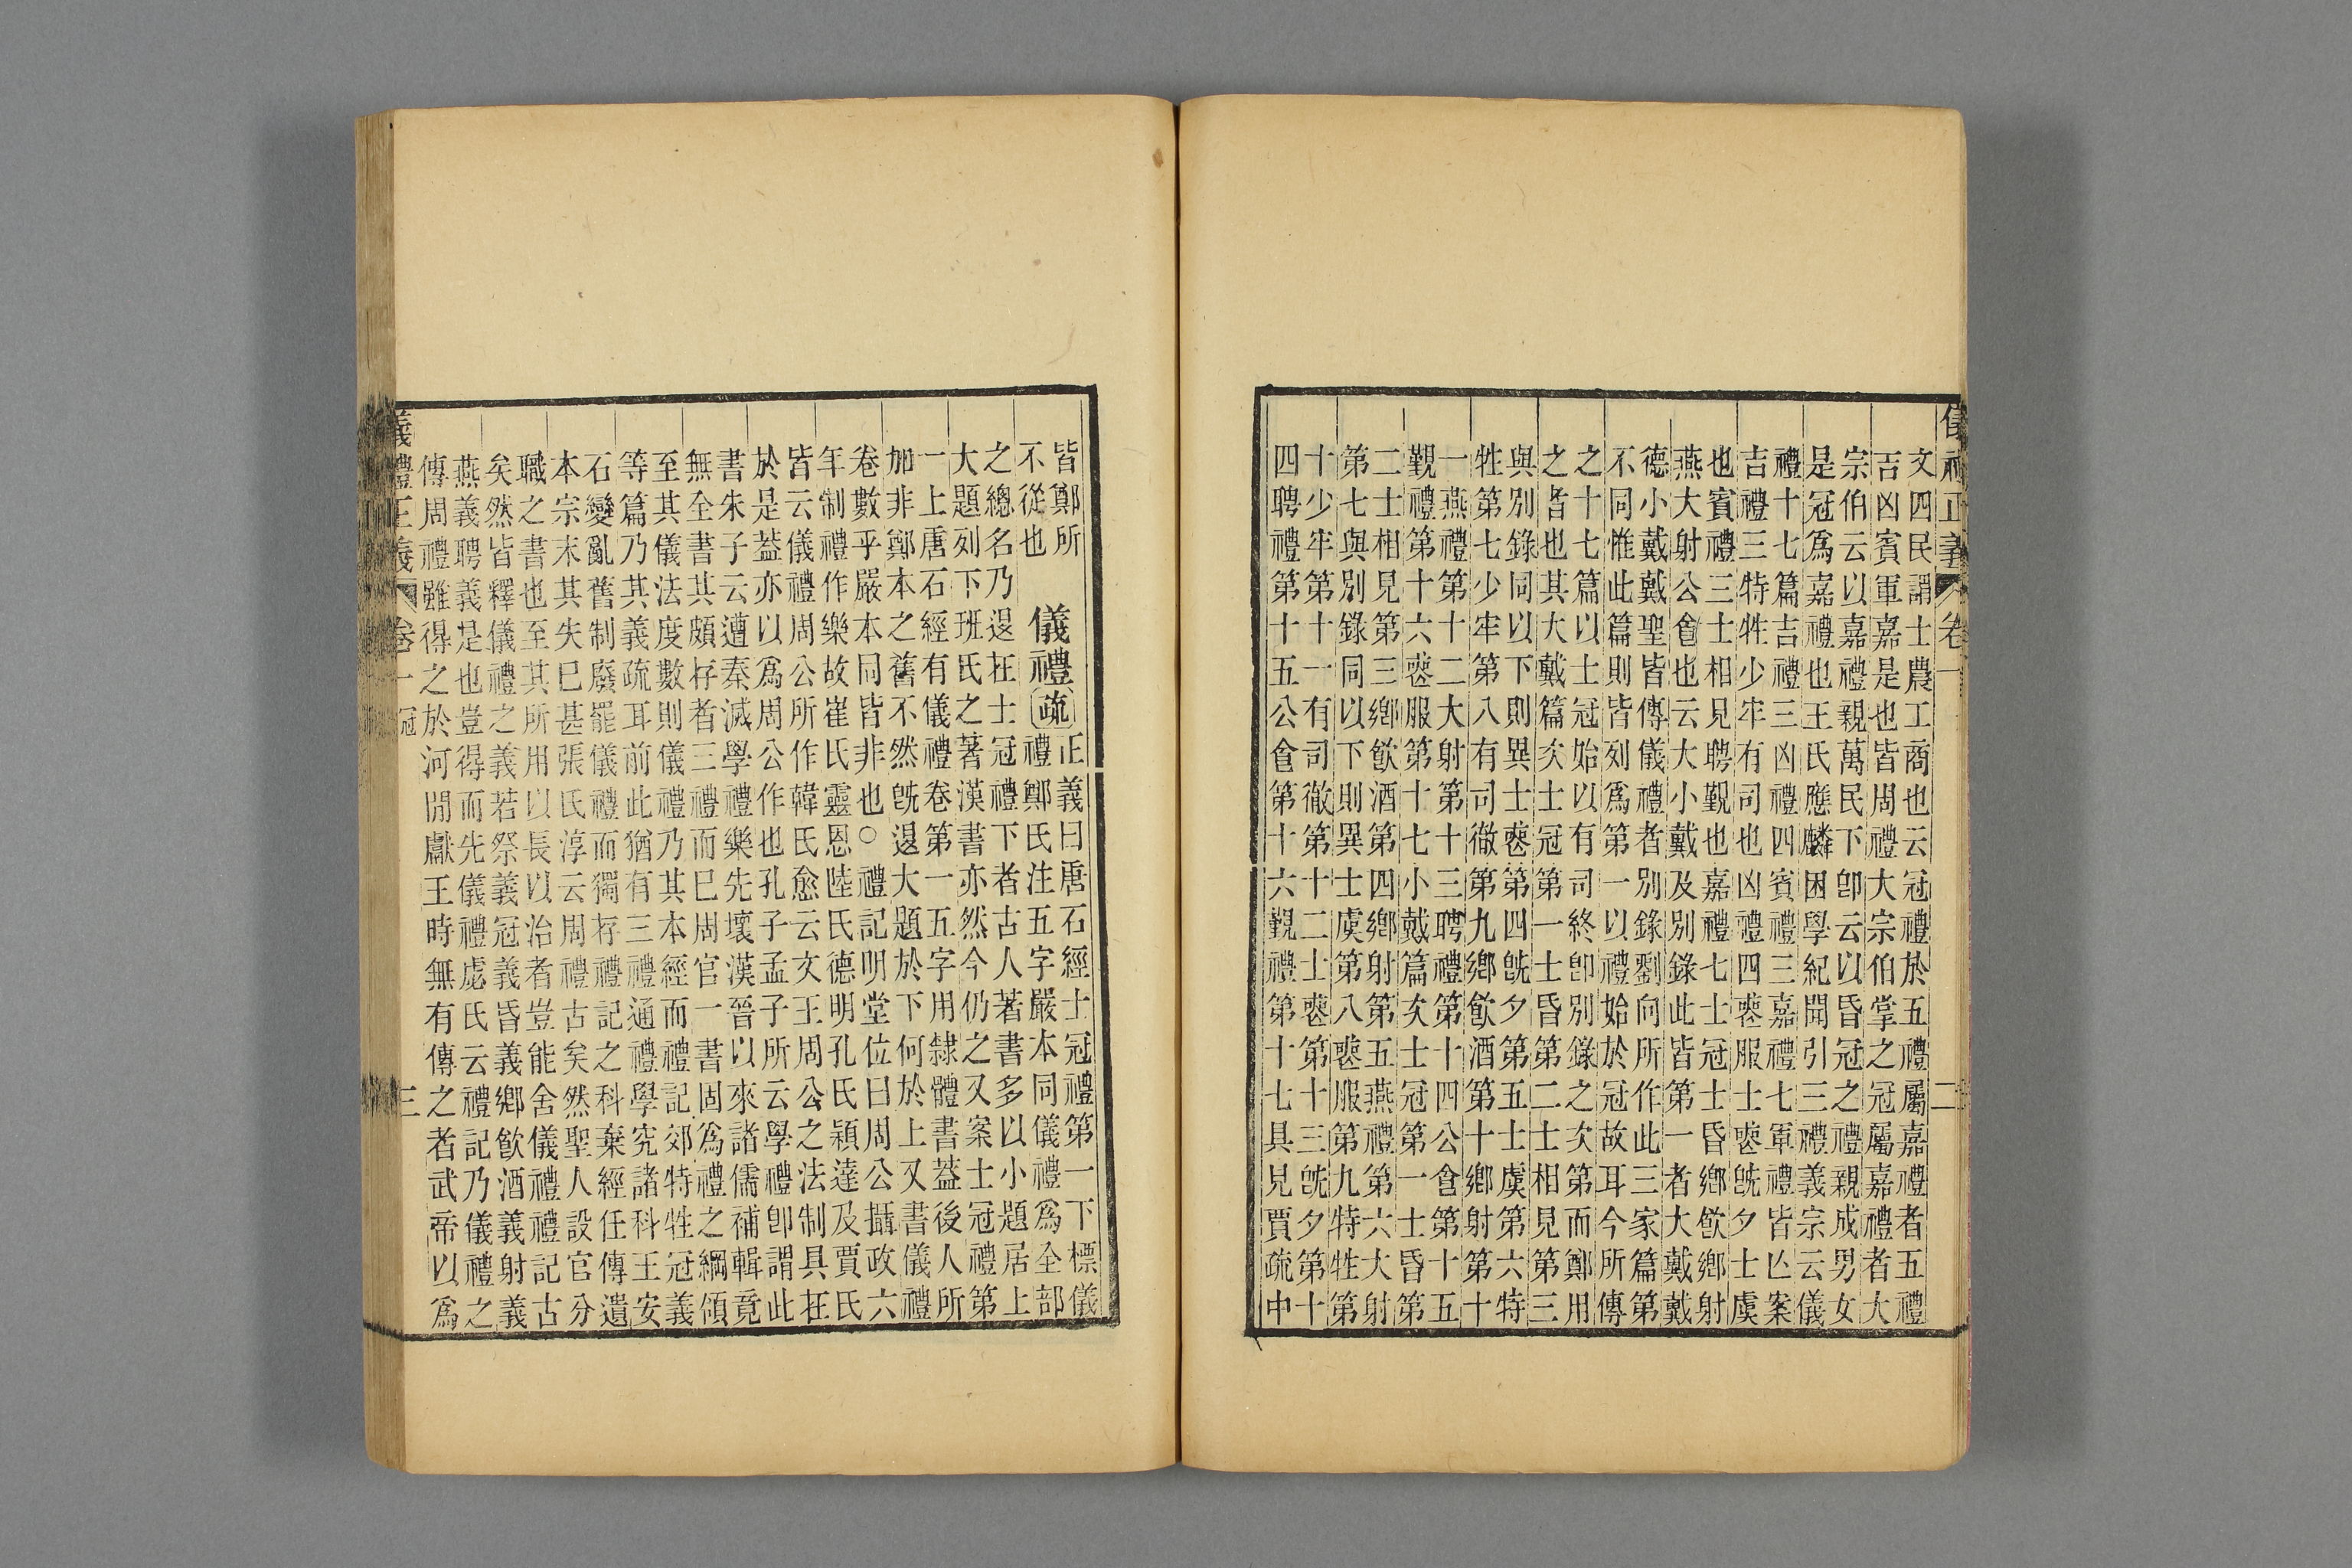 儀禮正義 卷一 二
文四民謂士農工商也云冠禮於五禮屬嘉禮者五禮
吉凶賓軍嘉是也皆周禮大宗伯掌之冠屬嘉禮者大
宗伯云以嘉禮親萬民下卽云以昏冠之禮親成男女
是冠爲嘉禮也王氏應麟困學紀聞引三禮義宗云儀
禮十七篇吉禮三凶禮四賓禮三嘉禮七軍禮皆亾案
吉禮三特牲少牢有司也凶禮四喪服士喪旣夕士虞
也賓禮三士相見聘覲也嘉禮七士冠士昏鄉飮鄉射
燕大射公食也云大小戴及別錄此皆第一者大戴戴
德小戴戴聖皆傳儀禮者別錄劉向所作此三家篇第
不同惟此篇則皆列爲第一以禮始於冠故耳今所傳
之十七篇以士冠始以有司終卽別錄之次第而鄭用
之者也其大戴篇次士冠第一士昏第二士相見第三
與別錄同以下則異士喪第四旣夕第五士虞第六特
牲第七少牢第八有司徹第九鄉飮酒第十鄉射第十
一燕禮第十二大射第十三聘禮第十四公食第十五
覲禮第十六喪服第十七小戴篇次士冠第一士昏第
二士相見第三鄉飮酒第四鄉射第五燕禮第六大射
第七與別錄同以下則異士虞第八喪服第九特牲第
十少牢第十一有司徹第十二士喪第十三旣夕第十
四聘禮第十五公食第十六覲禮第十七具見賈疏中
皆鄭所
不從也
儀禮疏
正義曰唐石經士冠禮第一下標儀
禮鄭氏注五字嚴本同儀禮爲全部
之總名乃退在士冠禮下者古人著書多以小題居上
大題列下班氏之著漢書亦然今仍之又案士冠禮第
一上唐石經有儀禮卷第一五字用隸體書蓋後人所
加非鄭本之舊不然旣退大題於下何於上又書儀禮
卷數乎嚴本同皆非也○禮記明堂位曰周公攝政六
年制禮作樂故崔氏靈恩陸氏德明孔氏穎達及賈氏
皆云儀禮周公所作韓氏愈云文王周公之法制具在
於是蓋亦以爲周公作也孔子孟子所云學禮卽謂此
書朱子云遭秦滅學禮樂先壞漢晉以來諸儒補輯竟
無全書其頗存者三禮而已周官一書固爲禮之綱領
至其儀法度數則儀禮乃其本經而禮記郊特牲冠義
等篇乃其義疏耳前此猶有三禮通禮學究諸科王安
石變亂舊制廢罷儀禮而獨存禮記之科棄經任傳遺
本宗末其失已甚張氏淳云周禮古矣然聖人設官分
職之書也至其所用以長以治者豈能舍儀禮禮記古
矣然皆釋儀禮之義若祭義冠義昏義鄉飮酒義射義
燕義聘義是也豈得而先儀禮虙氏云禮記乃儀禮之
傳周禮雖得之於河閒獻王時無有傳之者武帝以爲
儀禮正義 卷一 冠 三